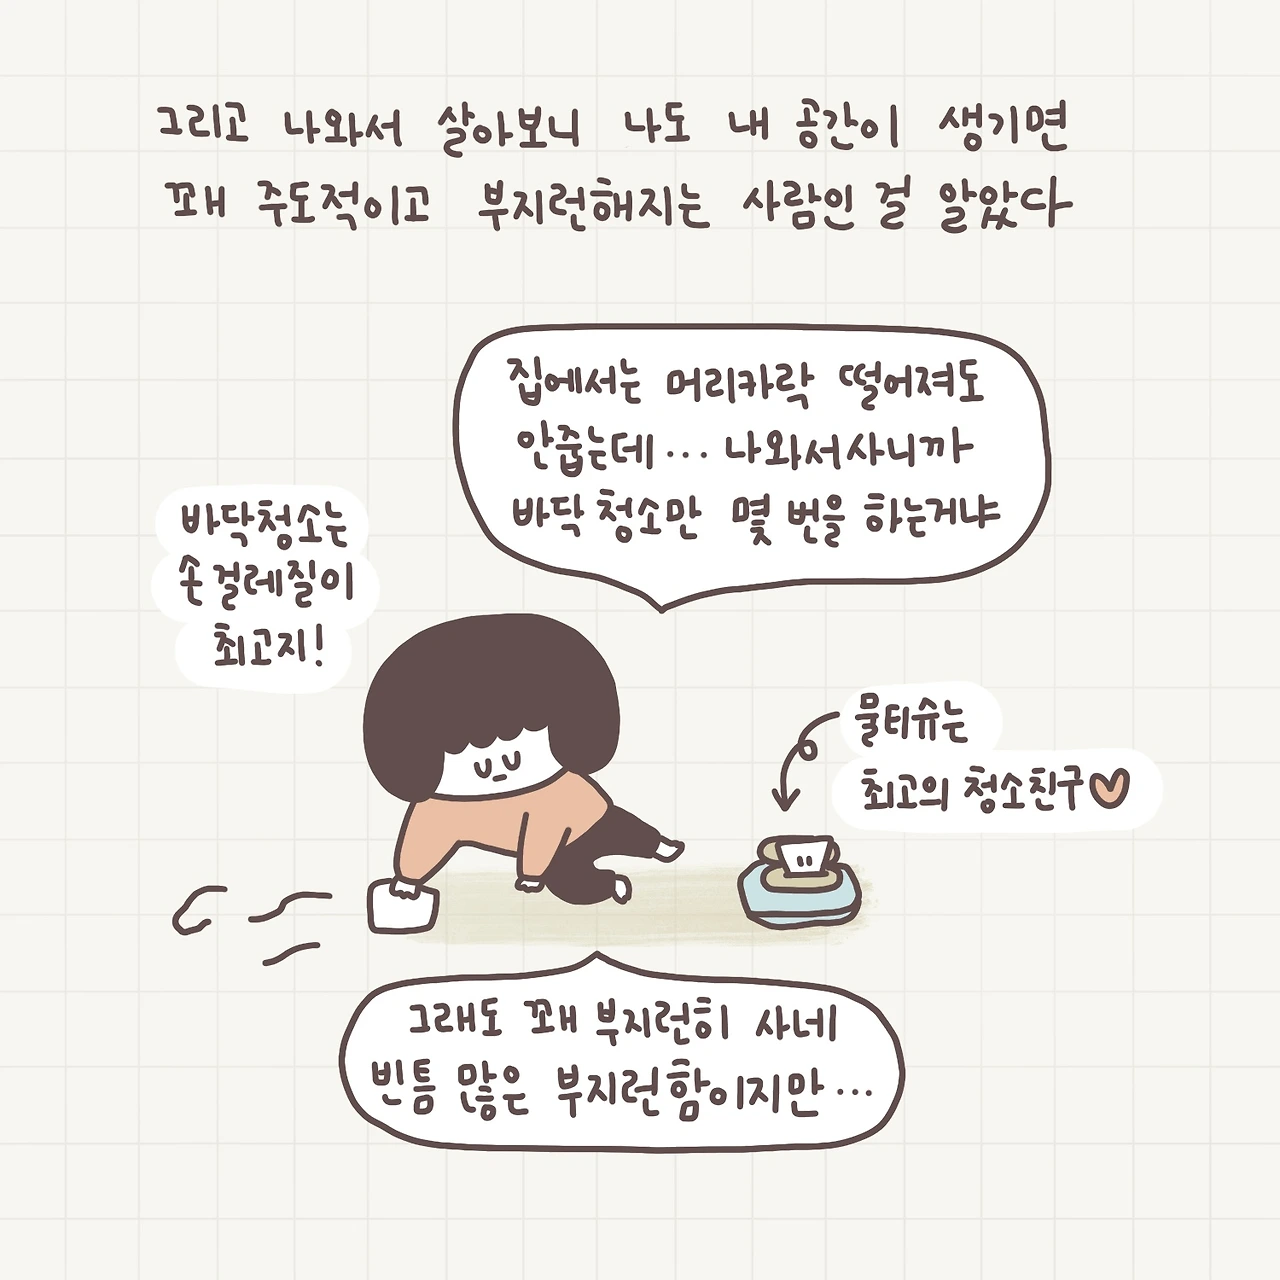 그리고 나와서 살아보니 나도 내 공간이 생기면
꽤 주도적이고 부지런해지는 사람인 걸 알았다
집에서는 머리카락 떨어져도
안줍는데... 나와서사니까
바닥 청소만 몇 번을 하는거냐
바닥청소는
손걸레질이
최고지!
물티슈는
최고의 청소친구♡
그래도 꽤 부지런히 사네
빈틈 많은 부지런함이지만...